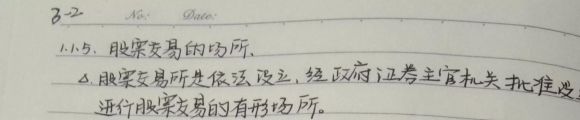 3-2 No: Date:
1.1.5. 股票交易的场所.
△. 股票交易所是依法设立, 经政府证券主官机关批准设
进行股票交易的有形场所。